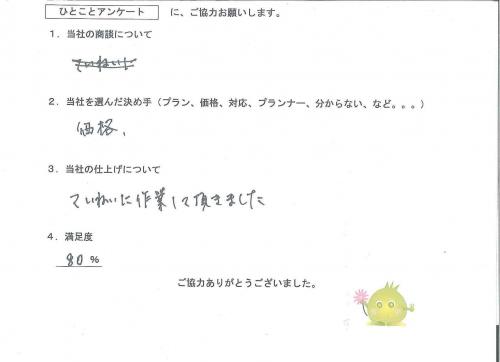 ひとことアンケート に、ご協力お願いします。
1．当社の商談について
ていねい！
2．当社を選んだ決め手（プラン、価格、対応、プランナー、分からない、など。。。）
価格、
3．当社の仕上げについて
ていねいに作業して頂きました
4．満足度
80 %
ご協力ありがとうございました。